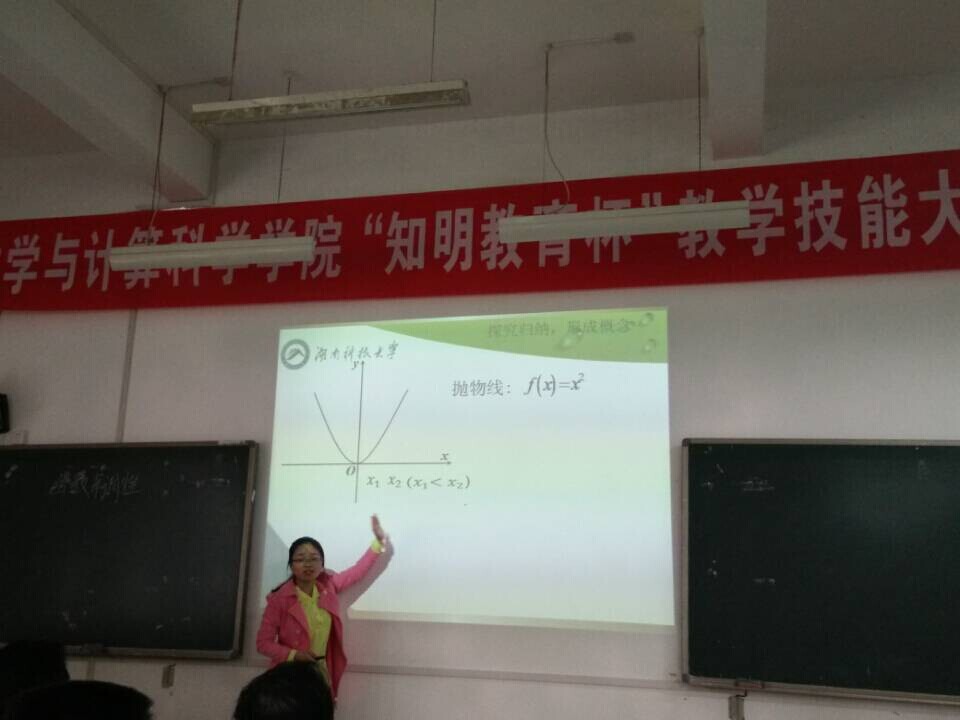 学与计算科学学院“知明教育杯”教学技能大
探究归纳，形成概念
湖南科技大学
y
抛物线：f(x)=x²
x
O
x₁ x₂ (x₁< x₂)